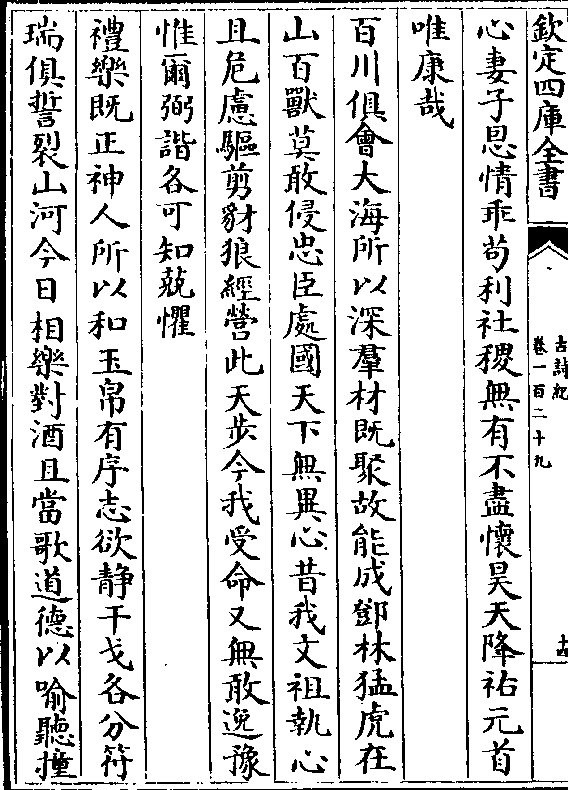 欽定四庫全書
古詩紀
卷一百二十九
十四
心妻子恩情乖苟利社稷無有不盡懷昊天降祐元首
唯康哉
百川俱會大海所以深羣材既聚故能成鄧林猛虎在
山百獸莫敢侵忠臣處國天下無異心昔我文祖執心
且危慮驅剪豺狼經營此天步今我受命又無敢逸豫
惟爾弼諧各可知兢懼
禮樂既正神人所以和玉帛有序志欲靜干戈各分符
瑞俱誓裂山河今日相樂對酒且當歌道德以喻聽撞